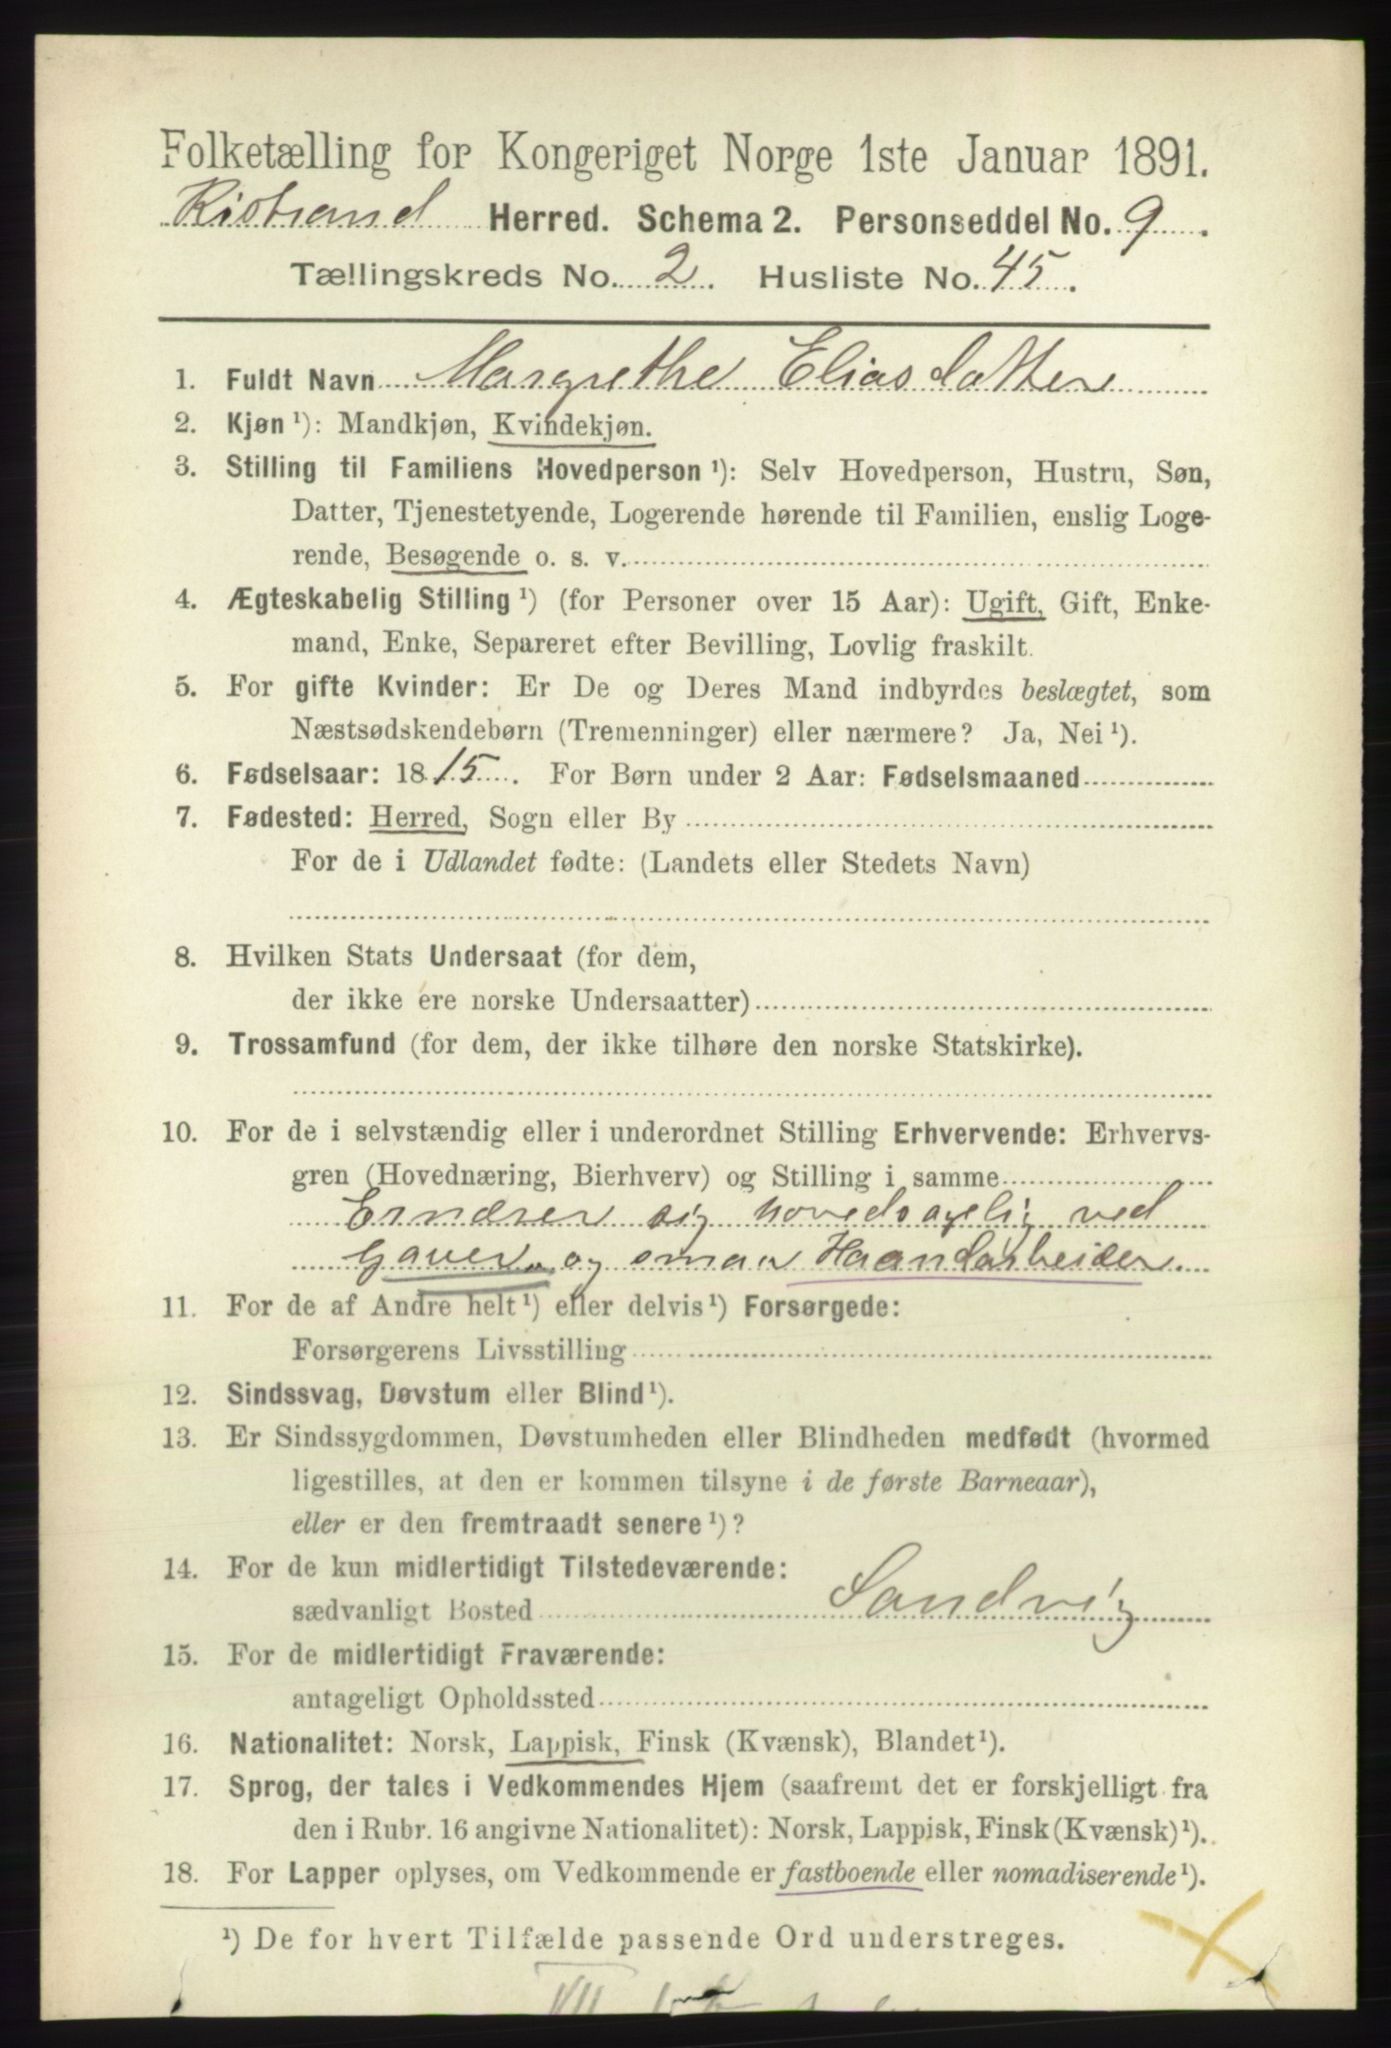 Folketælling for Kongeriget Norge 1ste Januar 1891.
Kistrand Herred. Schema 2. Personseddel No. 9.
Tællingskreds No. 2. Husliste No. 45.
1. Fuldt Navn Margrethe Eliasdatter
2. Kjøn ¹): Mandkjøn, Kvindekjøn.
3. Stilling til Familiens Hovedperson ¹): Selv Hovedperson, Hustru, Søn,
Datter, Tjenestetyende, Logerende hørende til Familien, enslig Loge-
rende, Besøgende o. s. v.
4. Ægteskabelig Stilling ¹) (for Personer over 15 Aar): Ugift, Gift, Enke-
mand, Enke, Separeret efter Bevilling, Lovlig fraskilt.
5. For gifte Kvinder: Er De og Deres Mand indbyrdes beslægtet, som
Næstsødskendebørn (Tremenninger) eller nærmere? Ja, Nei ¹).
6. Fødselsaar: 1815. For Børn under 2 Aar: Fødselsmaaned
7. Fødested: Herred, Sogn eller By
For de i Udlandet fødte: (Landets eller Stedets Navn)
8. Hvilken Stats Undersaat (for dem,
der ikke ere norske Undersaatter)
9. Trossamfund (for dem, der ikke tilhøre den norske Statskirke).
10. For de i selvstændig eller i underordnet Stilling Erhvervende: Erhvervs-
gren (Hovednæring, Bierhverv) og Stilling i samme
Ernærer sig hovedsagelig ved
Gaver og smaa Haandarbeider.
11. For de af Andre helt ¹) eller delvis ¹) Forsørgede:
Forsørgerens Livsstilling
12. Sindssvag, Døvstum eller Blind ¹).
13. Er Sindssygdommen, Døvstumheden eller Blindheden medfødt (hvormed
ligestilles, at den er kommen tilsyne i de første Barneaar),
eller er den fremtraadt senere ¹)?
14. For de kun midlertidigt Tilstedeværende:
sædvanligt Bosted Sandvig
15. For de midlertidigt Fraværende:
antageligt Opholdssted
16. Nationalitet: Norsk, Lappisk, Finsk (Kvænsk), Blandet ¹).
17. Sprog, der tales i Vedkommendes Hjem (saafremt det er forskjelligt fra
den i Rubr. 16 angivne Nationalitet): Norsk, Lappisk, Finsk (Kvænsk) ¹).
18. For Lapper oplyses, om Vedkommende er fastboende eller nomadiserende ¹).
¹) De for hvert Tilfælde passende Ord understreges.